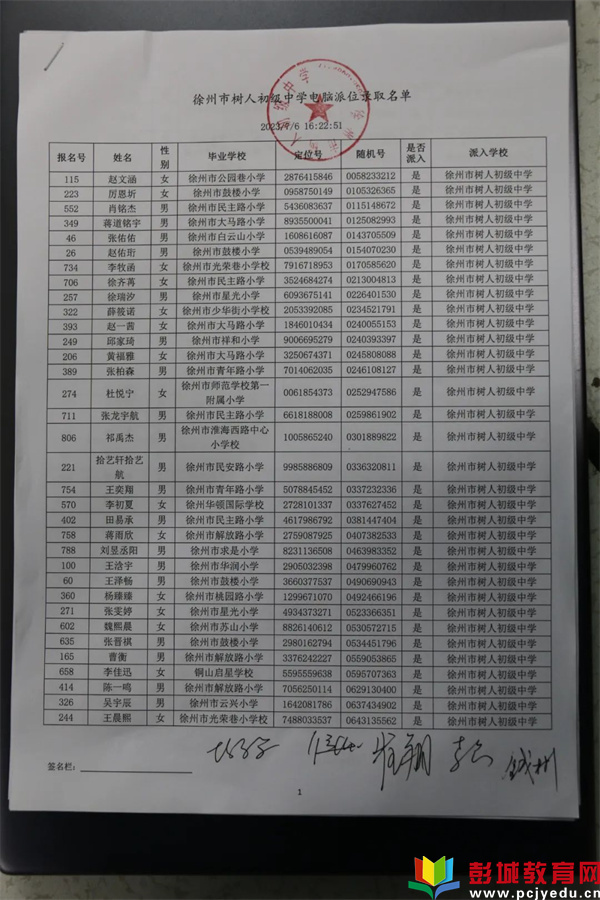 徐州市树人初级中学电脑派位录取名单
2023/7/6 16:22:51
报名号 姓名 性别 毕业学校 定位号 随机号 是否派入 派入学校
115 赵文涵 女 徐州市公园巷小学 2876415846 0058233212 是 徐州市树人初级中学
223 厉恩圻 女 徐州市鼓楼小学 0958750149 0105326365 是 徐州市树人初级中学
552 肖铭杰 男 徐州市民主路小学 5436083637 0115148672 是 徐州市树人初级中学
349 蒋道铭宇 男 徐州市大马路小学 8935500041 0125082993 是 徐州市树人初级中学
46 张佑佑 男 徐州市白云山小学 1608616087 0143705509 是 徐州市树人初级中学
26 赵佑珩 男 徐州市鼓楼小学 0539489054 0154070230 是 徐州市树人初级中学
734 李牧函 女 徐州市光荣巷小学校 7916718953 0170585620 是 徐州市树人初级中学
706 徐齐苒 女 徐州市民主路小学 3524684274 0213004813 是 徐州市树人初级中学
257 徐瑞汐 男 徐州市星光小学 6093675141 0226401530 是 徐州市树人初级中学
322 薛筱诺 女 徐州市少华街小学校 2053392085 0234521791 是 徐州市树人初级中学
393 赵一茜 女 徐州市大马路小学 1846010434 0240055153 是 徐州市树人初级中学
249 邱家琦 男 徐州市祥和小学 9006695279 0240393397 是 徐州市树人初级中学
206 黄福雅 女 徐州市大马路小学 3250674371 0245808088 是 徐州市树人初级中学
389 张柏森 男 徐州市青年路小学 7014062035 0246108127 是 徐州市树人初级中学
274 杜悦宁 女 徐州市师范学校第一附属小学 0061854373 0252947586 是 徐州市树人初级中学
711 张龙宇航 男 徐州市民主路小学 6618188008 0259861902 是 徐州市树人初级中学
806 祁禹杰 男 徐州市淮海西路中心小学校 1005865240 0301889822 是 徐州市树人初级中学
221 拾艺轩拾艺航 男 徐州市民安路小学 9985886809 0336320811 是 徐州市树人初级中学
754 王奕翔 男 徐州市青年路小学 5078845452 0337232336 是 徐州市树人初级中学
570 李初夏 女 徐州华顿国际学校 2728101337 0337627452 是 徐州市树人初级中学
402 田易承 男 徐州市民主路小学 4617986792 0381447404 是 徐州市树人初级中学
758 蒋雨欣 女 徐州市解放路小学 2759087925 0407382533 是 徐州市树人初级中学
788 刘昱丞阳 男 徐州市求是小学 8231136508 0463983352 是 徐州市树人初级中学
100 王浛宇 男 徐州市华润小学 2905032398 0479960762 是 徐州市树人初级中学
60 王泽畅 男 徐州市鼓楼小学 3660377537 0490690943 是 徐州市树人初级中学
360 杨臻臻 女 徐州市桃园路小学 1299671070 0492466196 是 徐州市树人初级中学
271 张雯婷 女 徐州市星光小学 4934373271 0523366351 是 徐州市树人初级中学
602 魏熙晨 女 徐州市苏山小学 8826140612 0530572715 是 徐州市树人初级中学
635 张晋祺 男 徐州市鼓楼小学 2980162794 0534451796 是 徐州市树人初级中学
165 曹衡 男 徐州市解放路小学 3376242227 0559053865 是 徐州市树人初级中学
658 李佳迅 女 铜山启星学校 5595559638 0595707363 是 徐州市树人初级中学
414 陈一鸣 男 徐州市解放路小学 7056250114 0629130400 是 徐州市树人初级中学
326 吴宇辰 男 徐州市云兴小学 1642081786 0637434902 是 徐州市树人初级中学
244 王晨熙 女 徐州市光荣巷小学校 7488033537 0643135562 是 徐州市树人初级中学
签名栏：
1
彭城教育网
www.pcjyedu.cn